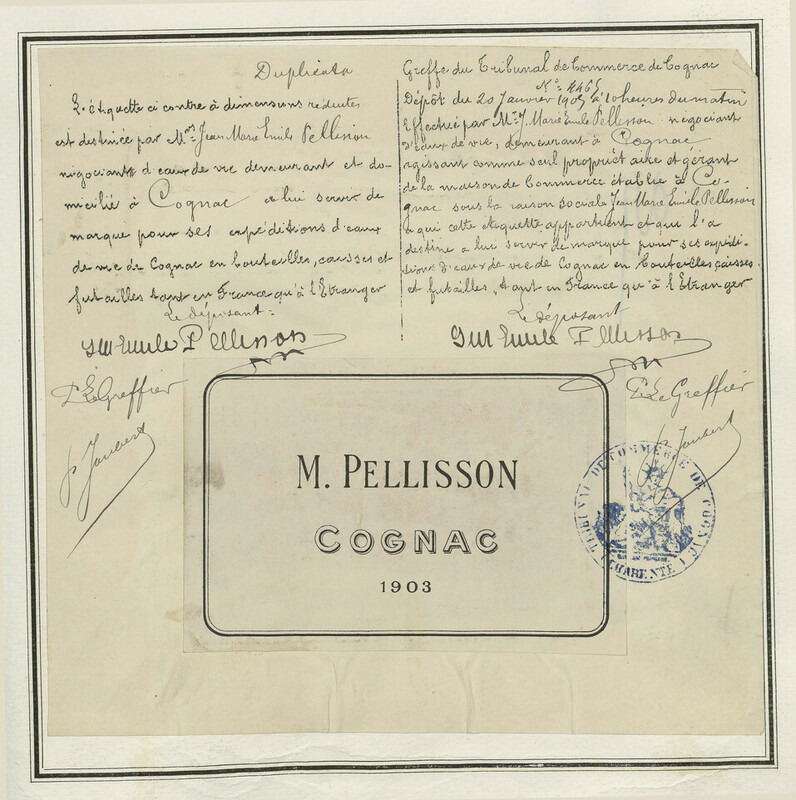 Duplicata
L'étiquette ci contre à dimensions réduites
est destinée par Mr Jean Marie Emile Pellisson
négociant d'eaux de vie demeurant et do-
micilié à Cognac a lui servir de
marque pour ses expéditions d'eaux
de vie de Cognac en bouteilles, caisses et
futailles tant en France qu'à l'Etranger
Le déposant:
JM Emile Pellisson
P. Le Greffier
P. Joubert
Greffe du Tribunal de Commerce de Cognac
No 446
Dépôt du 20 Janvier 1905 à 10 heures du matin
Effectué par Mr J. Marie Emile Pellisson négociant
d'eaux de vie, demeurant à Cognac
agissant comme seul propriétaire et gérant
de la maison de Commerce établie à Co-
gnac sous la raison sociale Jean Marie Emile Pellisson
a qui cette étiquette appartient et qui l'a
destine a lui servir de marque pour ses expédi-
tions d'eaux de vie de Cognac en bouteilles, caisses
et futailles, tant en France qu'à l'Etranger
Le déposant
JM Emile Pellisson
P. Le Greffier
P. Joubert
M. PELLISSON
COGNAC
1903
TRIBUNAL DE COMMERCE DE COGNAC
CHARENTE